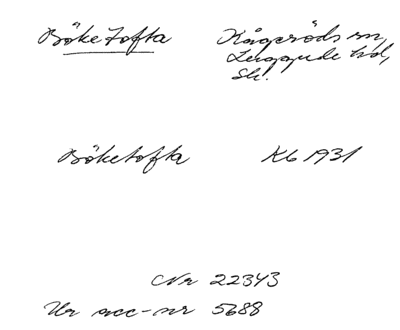 Böketofta Kågeröds sn,
Luggude hd,
Sk.
Böketofta Kb 1931
Nr 22343
Ur acc-nr 5688